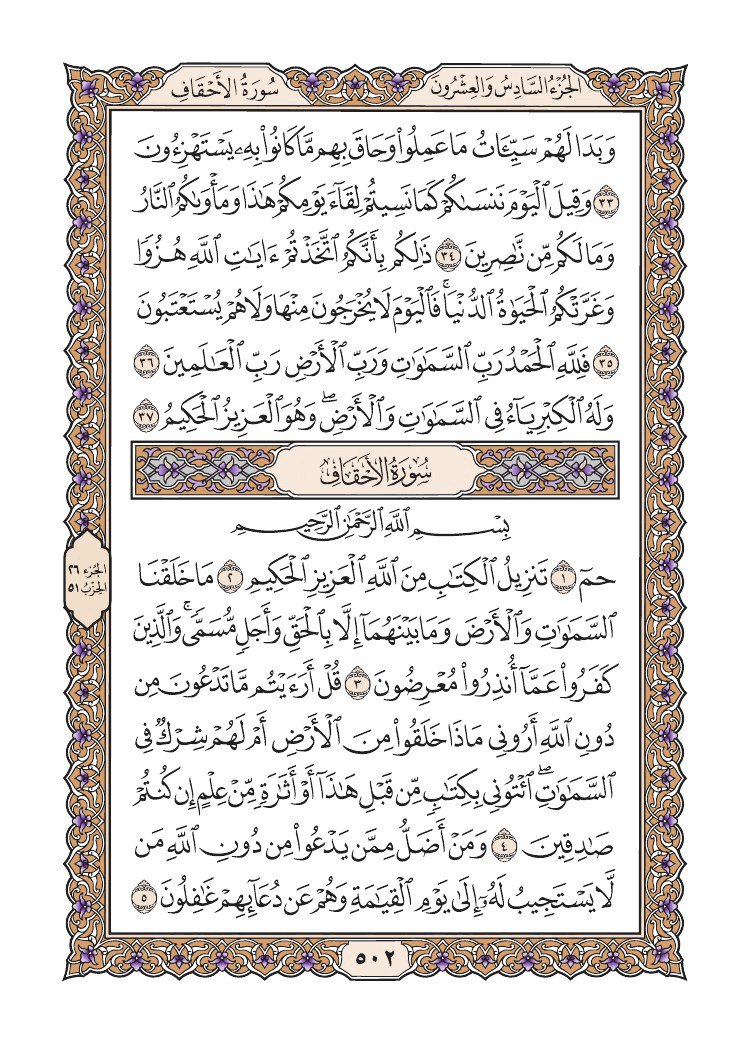 الجُزْءُ السَّادِسُ وَالعِشْرُونَ
سُورَةُ الأَحْقَافِ
وَبَدَا لَهُمْ سَيِّـَٔاتُ مَا عَمِلُوا۟ وَحَاقَ بِهِم مَّا كَانُوا۟ بِهِۦ يَسْتَهْزِءُونَ
٣٣ وَقِيلَ ٱلْيَوْمَ نَنسَىٰكُمْ كَمَا نَسِيتُمْ لِقَآءَ يَوْمِكُمْ هَـٰذَا وَمَأْوَىٰكُمُ ٱلنَّارُ
وَمَا لَكُم مِّن نَّـٰصِرِينَ ٣٤ ذَٰلِكُم بِأَنَّكُمُ ٱتَّخَذْتُمْ ءَايَـٰتِ ٱللَّهِ هُزُوًا
وَغَرَّتْكُمُ ٱلْحَيَوٰةُ ٱلدُّنْيَا ۚ فَٱلْيَوْمَ لَا يُخْرَجُونَ مِنْهَا وَلَا هُمْ يُسْتَعْتَبُونَ
٣٥ فَلِلَّهِ ٱلْحَمْدُ رَبِّ ٱلسَّمَـٰوَٰتِ وَرَبِّ ٱلْأَرْضِ رَبِّ ٱلْعَـٰلَمِينَ ٣٦
وَلَهُ ٱلْكِبْرِيَآءُ فِى ٱلسَّمَـٰوَٰتِ وَٱلْأَرْضِ ۖ وَهُوَ ٱلْعَزِيزُ ٱلْحَكِيمُ ٣٧
سُورَةُ الأَحْقَافِ
بِسْمِ ٱللَّهِ ٱلرَّحْمَـٰنِ ٱلرَّحِيمِ
حمٓ ١ تَنزِيلُ ٱلْكِتَـٰبِ مِنَ ٱللَّهِ ٱلْعَزِيزِ ٱلْحَكِيمِ ٢ مَا خَلَقْنَا
ٱلسَّمَـٰوَٰتِ وَٱلْأَرْضَ وَمَا بَيْنَهُمَآ إِلَّا بِٱلْحَقِّ وَأَجَلٍ مُّسَمًّى ۚ وَٱلَّذِينَ
كَفَرُوا۟ عَمَّآ أُنذِرُوا۟ مُعْرِضُونَ ٣ قُلْ أَرَءَيْتُم مَّا تَدْعُونَ مِن
دُونِ ٱللَّهِ أَرُونِى مَاذَا خَلَقُوا۟ مِنَ ٱلْأَرْضِ أَمْ لَهُمْ شِرْكٌ فِى
ٱلسَّمَـٰوَٰتِ ۖ ٱئْتُونِى بِكِتَـٰبٍ مِّن قَبْلِ هَـٰذَآ أَوْ أَثَـٰرَةٍ مِّنْ عِلْمٍ إِن كُنتُمْ
صَـٰدِقِينَ ٤ وَمَنْ أَضَلُّ مِمَّن يَدْعُوا۟ مِن دُونِ ٱللَّهِ مَن
لَّا يَسْتَجِيبُ لَهُۥٓ إِلَىٰ يَوْمِ ٱلْقِيَـٰمَةِ وَهُمْ عَن دُعَآئِهِمْ غَـٰفِلُونَ ٥
الجُزْءُ ٢٦
الحِزْبُ ٥١
٥٠٢